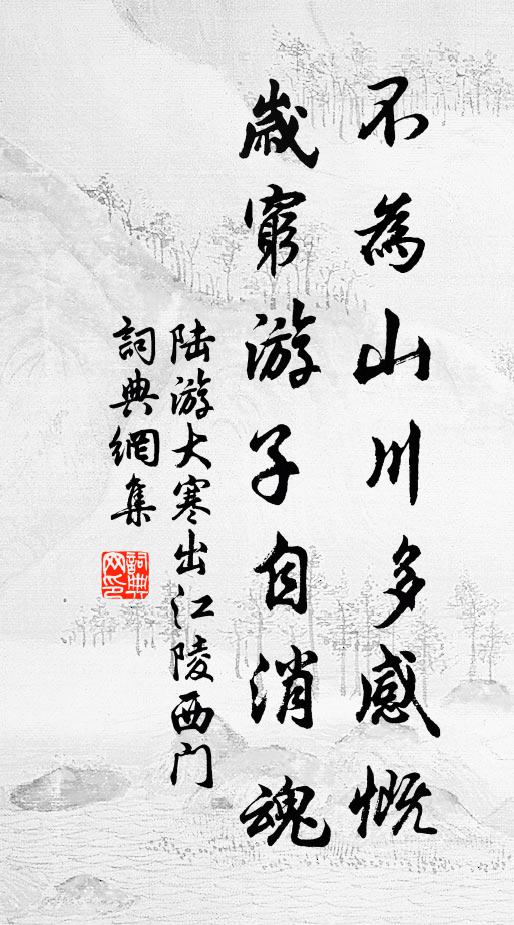 不為山川多感慨
歲窮游子自消魂
陆游大寒出江陵西门
詞典網集
詞典网印